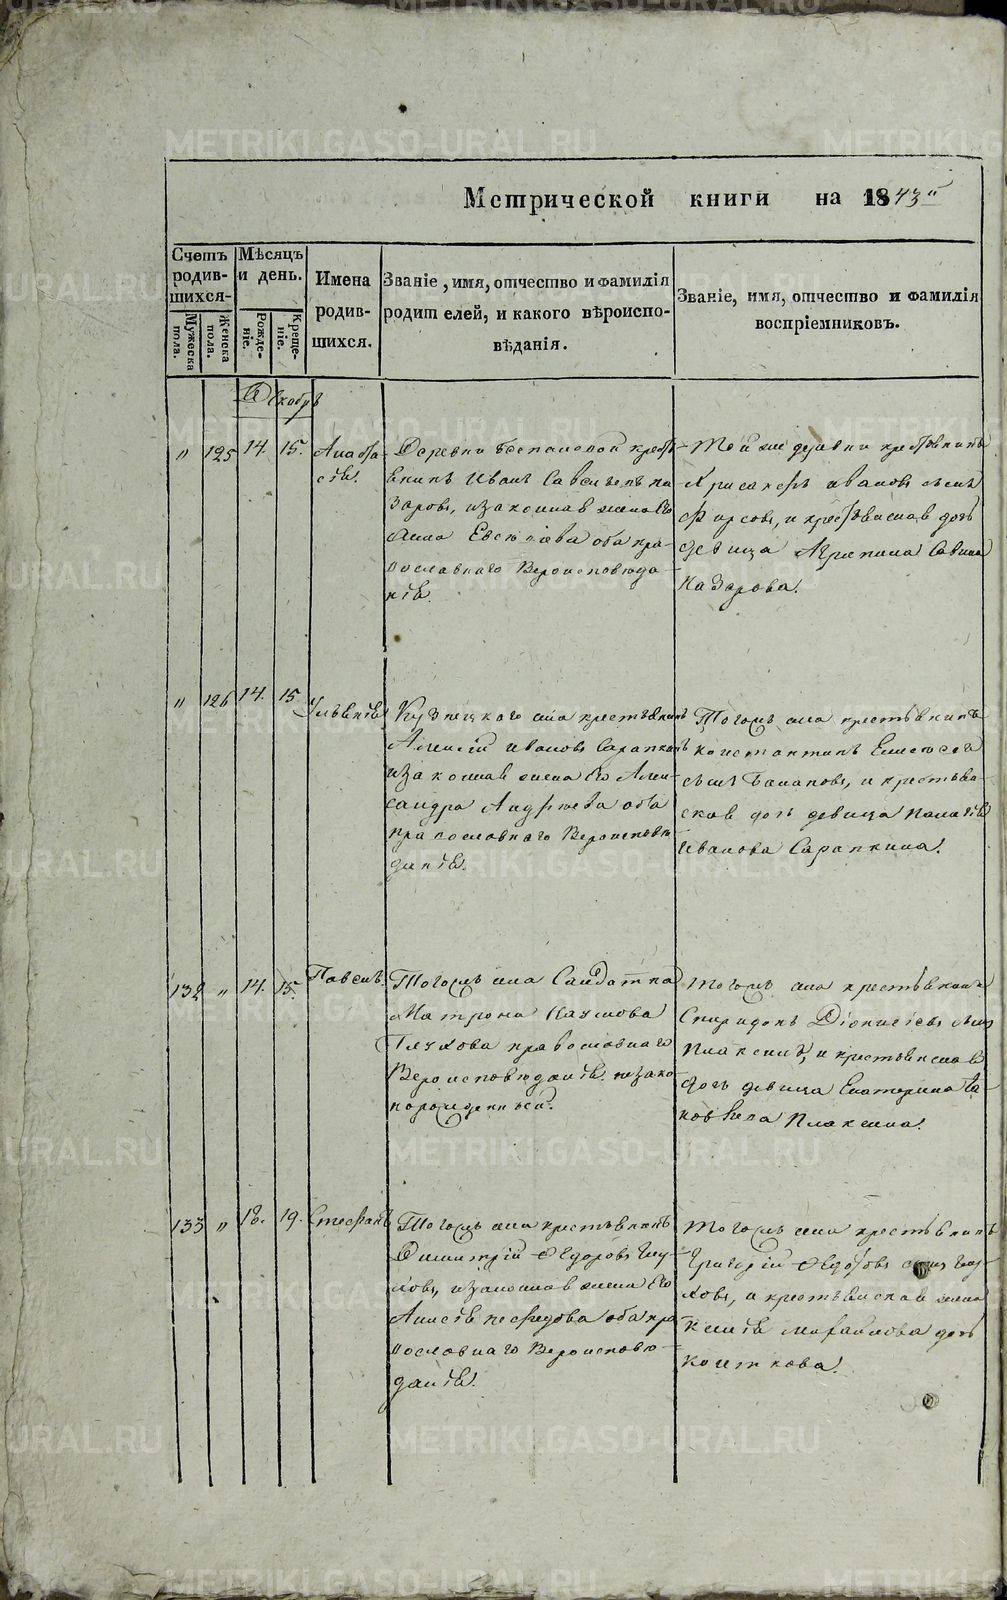 Метрической книги на 1843й
Счетъ родив-шихся
Мужеска пола.
Женска пола.
Мѣсяцъ и день.
Рожде-ніе.
Креще-ніе.
Имена
родив-
шихся.
Званіе, имя, отчество и фамилія
родителей, и какого вѣроиспо-
вѣданія.
Званіе, имя, отчество и фамилія
воспріемниковъ.
Декабрь
" 125 14. 15.
Анаста
сія.
Деревни кресть
янинъ Иванъ На
заровъ, и законная жена его
Анна оба пра-
вославнаго Вероисповѣда
нія.
Той же деревни крестьянинъ
Ивановъ сынъ
Фирсовъ, и крестьянская дочь
девица Агрипина Савина
Назарова.
" 126 14. 15
Уліянія
крестьянинъ
Алексій Ивановъ Сарапкинъ
и законная жена его Алек-
сандра Андреева оба
православнаго Вероисповѣ
данія.
Тогожъ села крестьянинъ
Константинъ Елисеевъ
сынъ и крестьян-
ская дочь девица Палагія
Иванова Сарапкина.
132 " 14. 15.
Павелъ.
Тогожъ села Салдатка
Матрона Наумова
Глухова православнаго
Вероисповѣданія. незако
норожденный.
Тогожъ села крестьянинъ
Спиридонъ Діонисіевъ сынъ
Плаксинъ, и крестьянская
дочь девица Екатерина Яко
влева Плаксина.
133 " 18. 19.
Стефанъ
Тогожъ села крестьянинъ
Димитрій Ѳедоровъ Глу-
ховъ, и законная жена его
оба пра
вославнаго Вероисповѣ-
данія.
Тогожъ села крестьянинъ
Григорій Ѳедоровъ сынъ Глу-
ховъ, и крестьянская жена
Ксенія Михайлова дочь